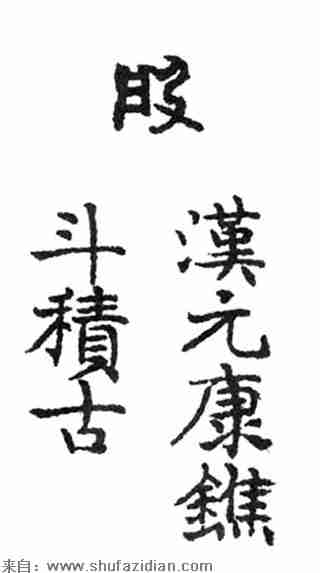 漢元康鐎
斗積古
来自：www.shufazidian.com